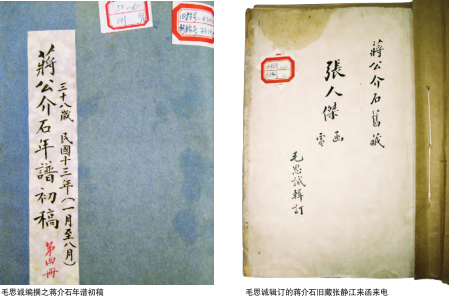 蔣公介石年譜初稿
三十八歲 民國十三年(一月至八月)
第四冊
蔣公介石舊藏
張人傑函電
毛思誠輯訂
毛思诚编撰之蒋介石年谱初稿
毛思诚辑订的蒋介石旧藏张静江来函来电